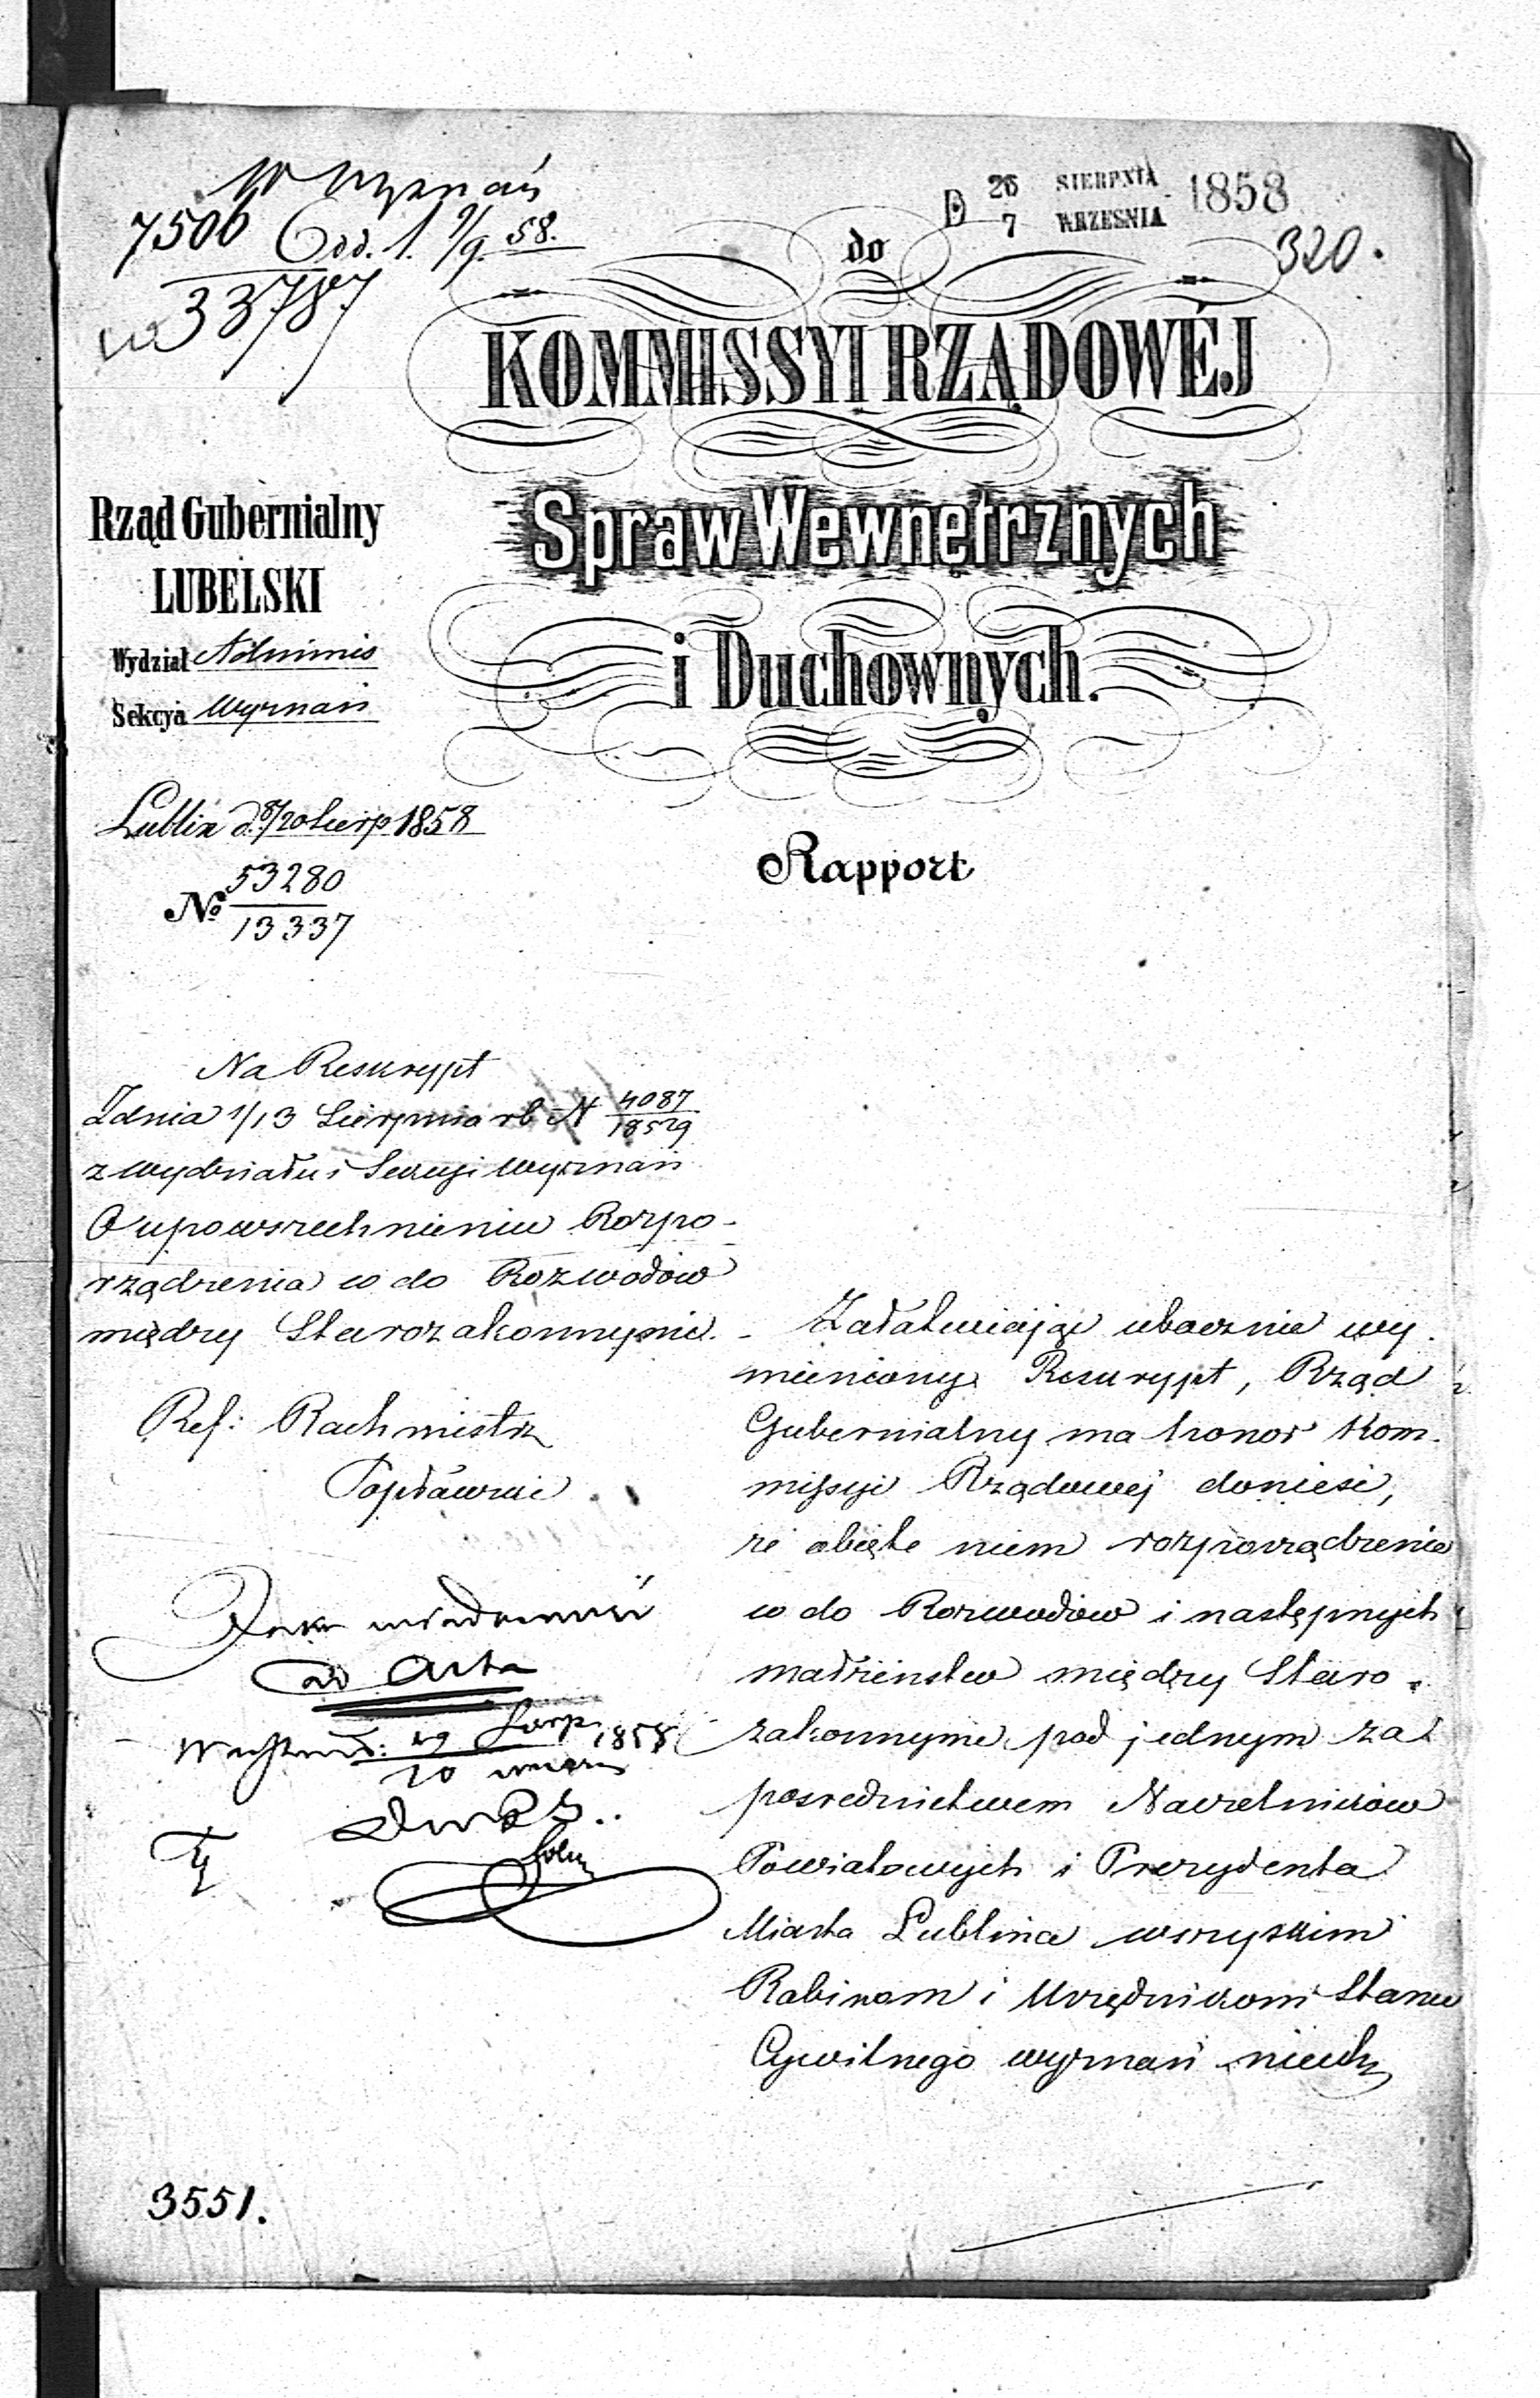 W Wyznań
7506 Odd. 1. 9/9. 58.
33787
D 26 SIERPNIA 1858
7 WRZESNIA
320.
do
KOMMISSYI RZĄDOWÉJ
Spraw Wewnetrznych
i Duchownych.
Rząd Gubernialny
LUBELSKI
Wydział Adminis
Sekcya Wyznań
Lublin d. 8/20 Sierp 1858
No 53280
13337
Rapport
Na Reskrypt
Z dnia 1/13 Sierpnia rb N 4087
18529
z wydziału i Sekcyi Wyznań
O upowszechnieniu Rozpo-
rządzenia co do Rozwodów
między Starozakonnymi.
Ref: Rachmistrz
Jako wiadomość
ad Acta
29 Sierp. 1858
10 wrześ
3551.
Załatwiając ubocznie wy-
mieniony Reskrypt, Rząd
Gubernialny ma honor Kom-
missyi Rządowej donieść,
że objęte niem rozporządzenie
co do Rozwodów i następnych
małżeństw między Staro-
zakonnymi pod jednym za
pośrednictwem Naczelników
Powiatowych i Prezydenta
Miasta Lublina wszystkim
Rabinom i Urzędnikom Stanu
Cywilnego wyznań niech